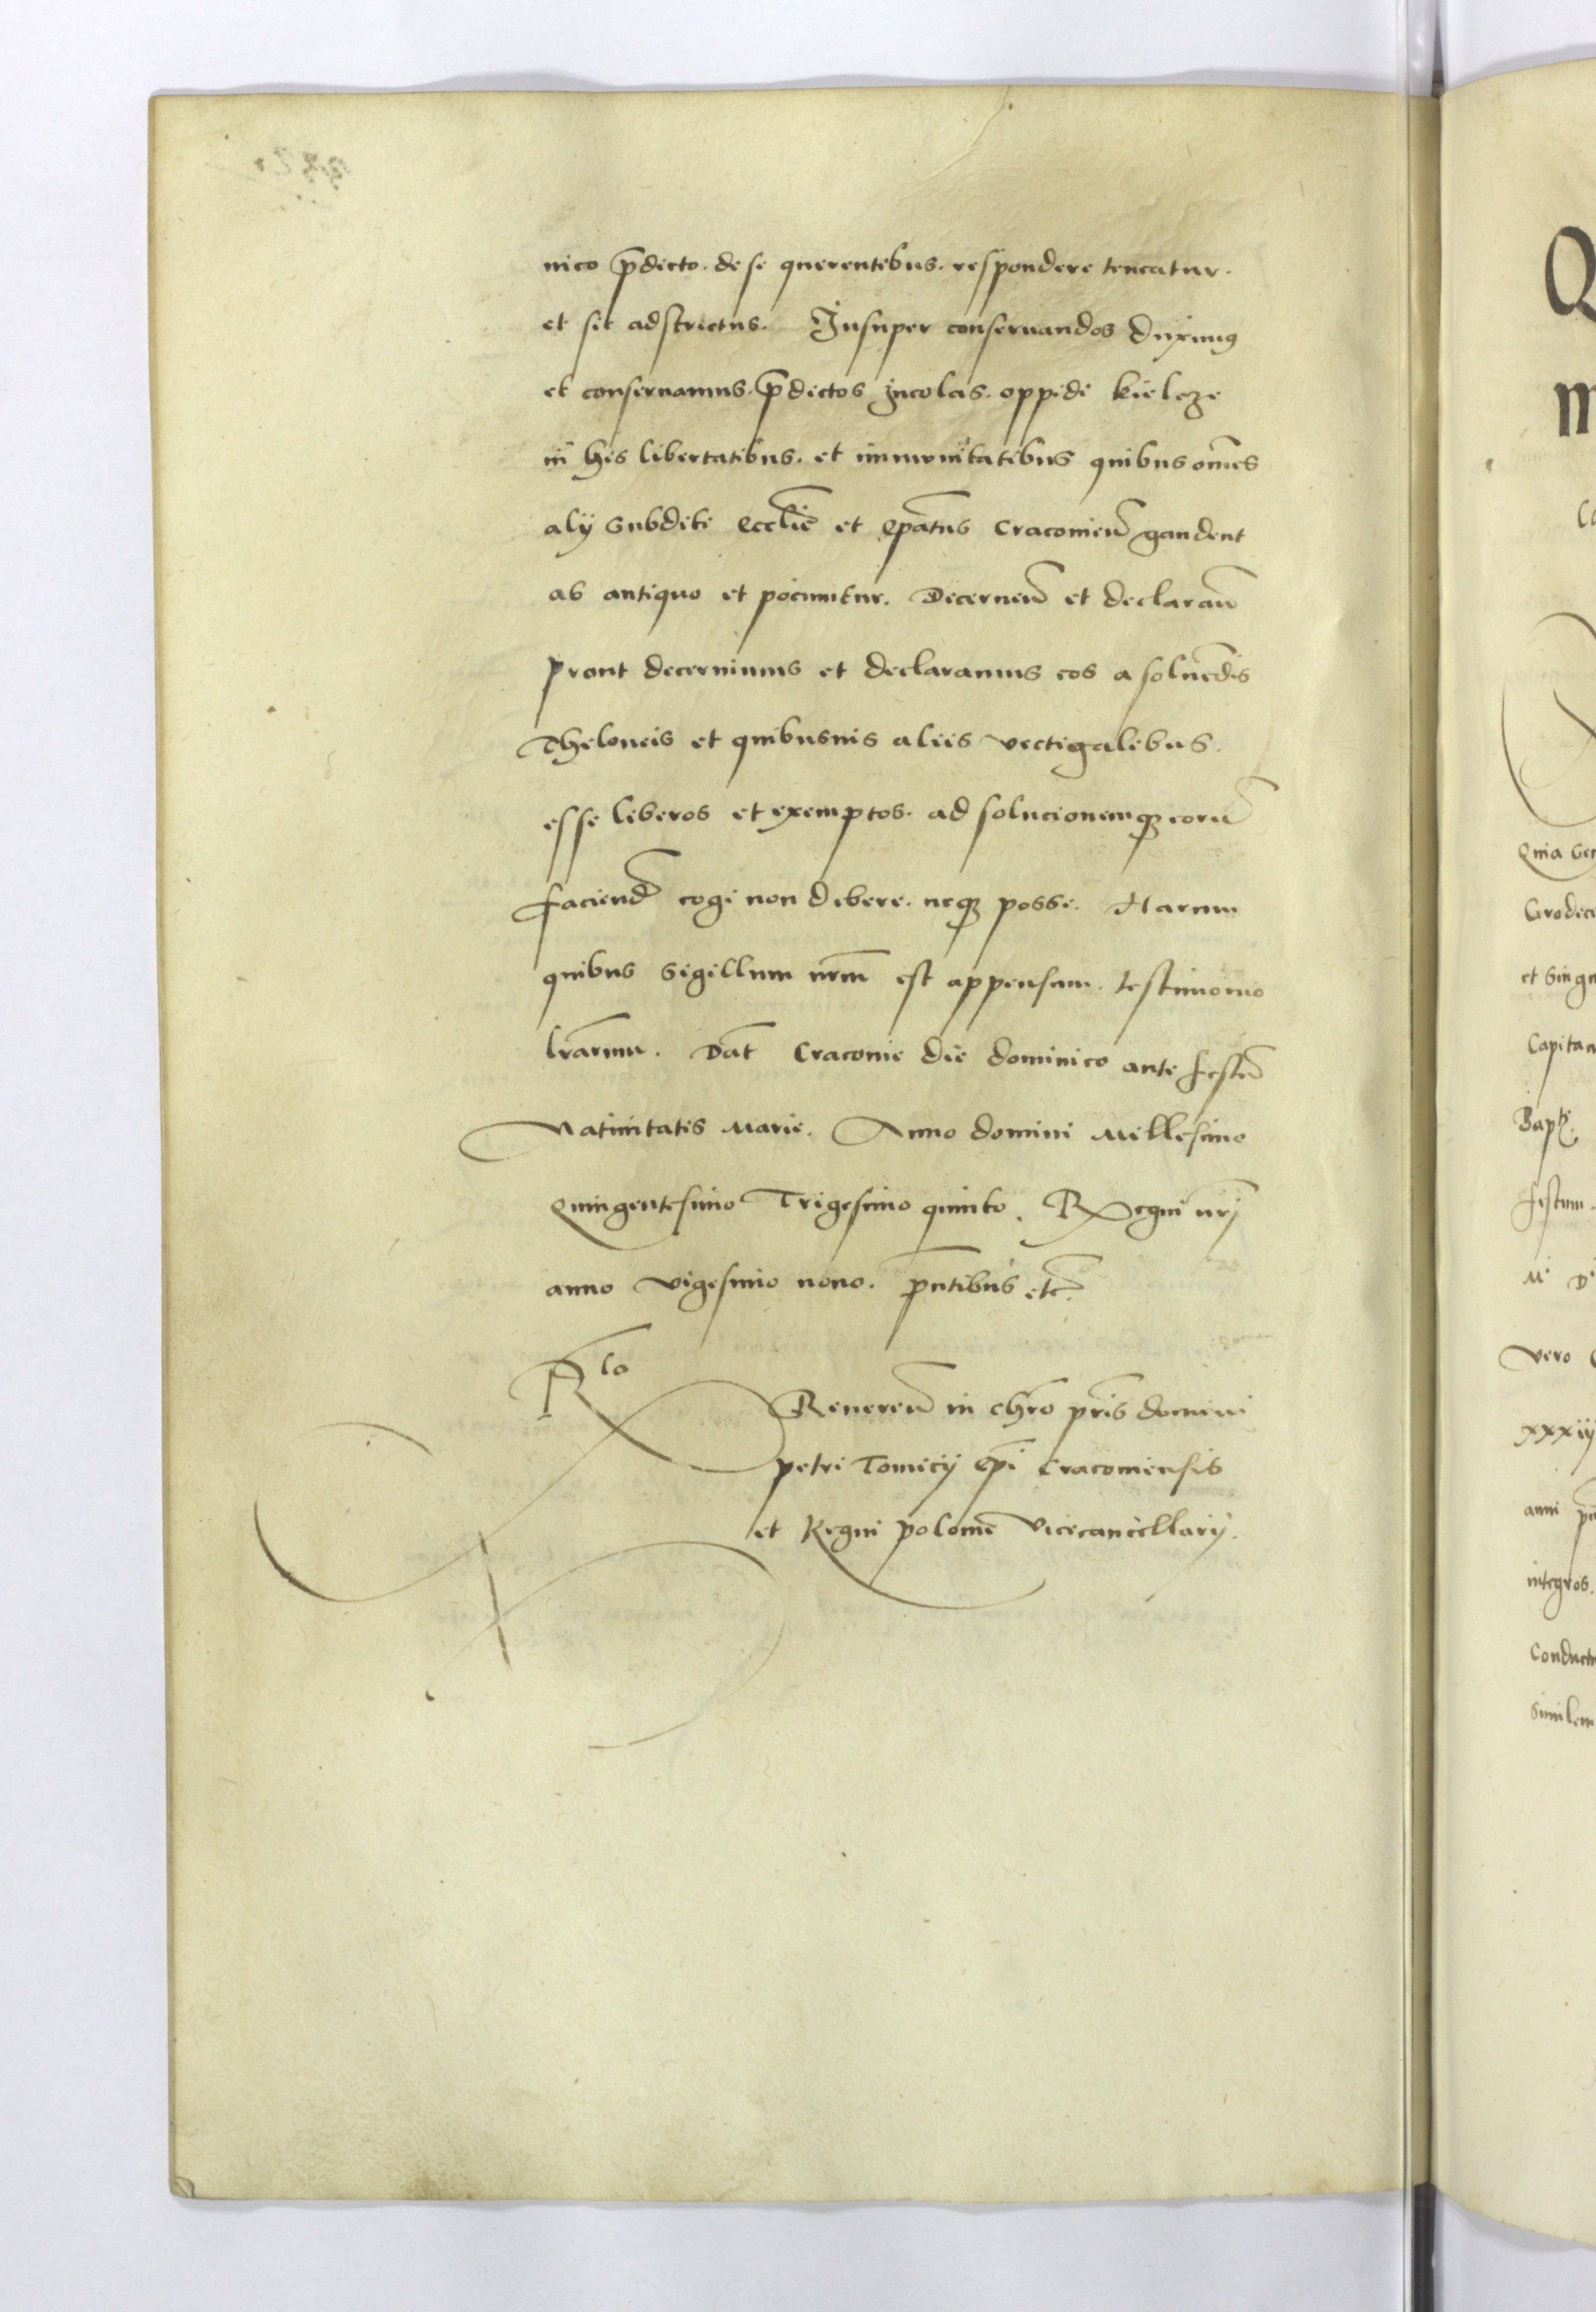 nico p̄dicto. de se querentibus. respondere teneatur.
et sit adstrictus. Insuper conseruandos duximꝰ
et conseruamus. p̄dictos incolas. oppidi kielcze
in his libertatibus. et immunitatibus quibus om̄es
alij subditi eccl̄ie et ep̄atus Cracouien̄ gaudent
ab antiquo et pociuntur. Decernen̄ et declaran̄
prout decernimus et declaramus eos a soluēdis
Theloneis et quibusuis aliis vectigalibus.
esse liberos et exemptos. ad solucionemqꝫ eorū
faciend̄ cogi non debere. neqꝫ posse. Harum
quibus sigillum nr̄m est appensum. testimonio
lr̄arum. Dat̄ Cracouie die dominico ante festū
Natiuitatis Marie. Anno domini Millesimo
Quingentesimo Trigesimo quinto. Regni nr̄i
anno vigesimo nono. p̄ntibus etc̄.
Rlo
Reueren̄ in chr̄o pr̄is domini
petri Tomicij ep̄i Cracouiensis
et Regni polonie Vicecancellarij.
Q
m
Quia
Grodec
et sing
Capitan
Bapt̄
festum
M D
vero
xxxiij
anni
integros.
Conduct
Similem